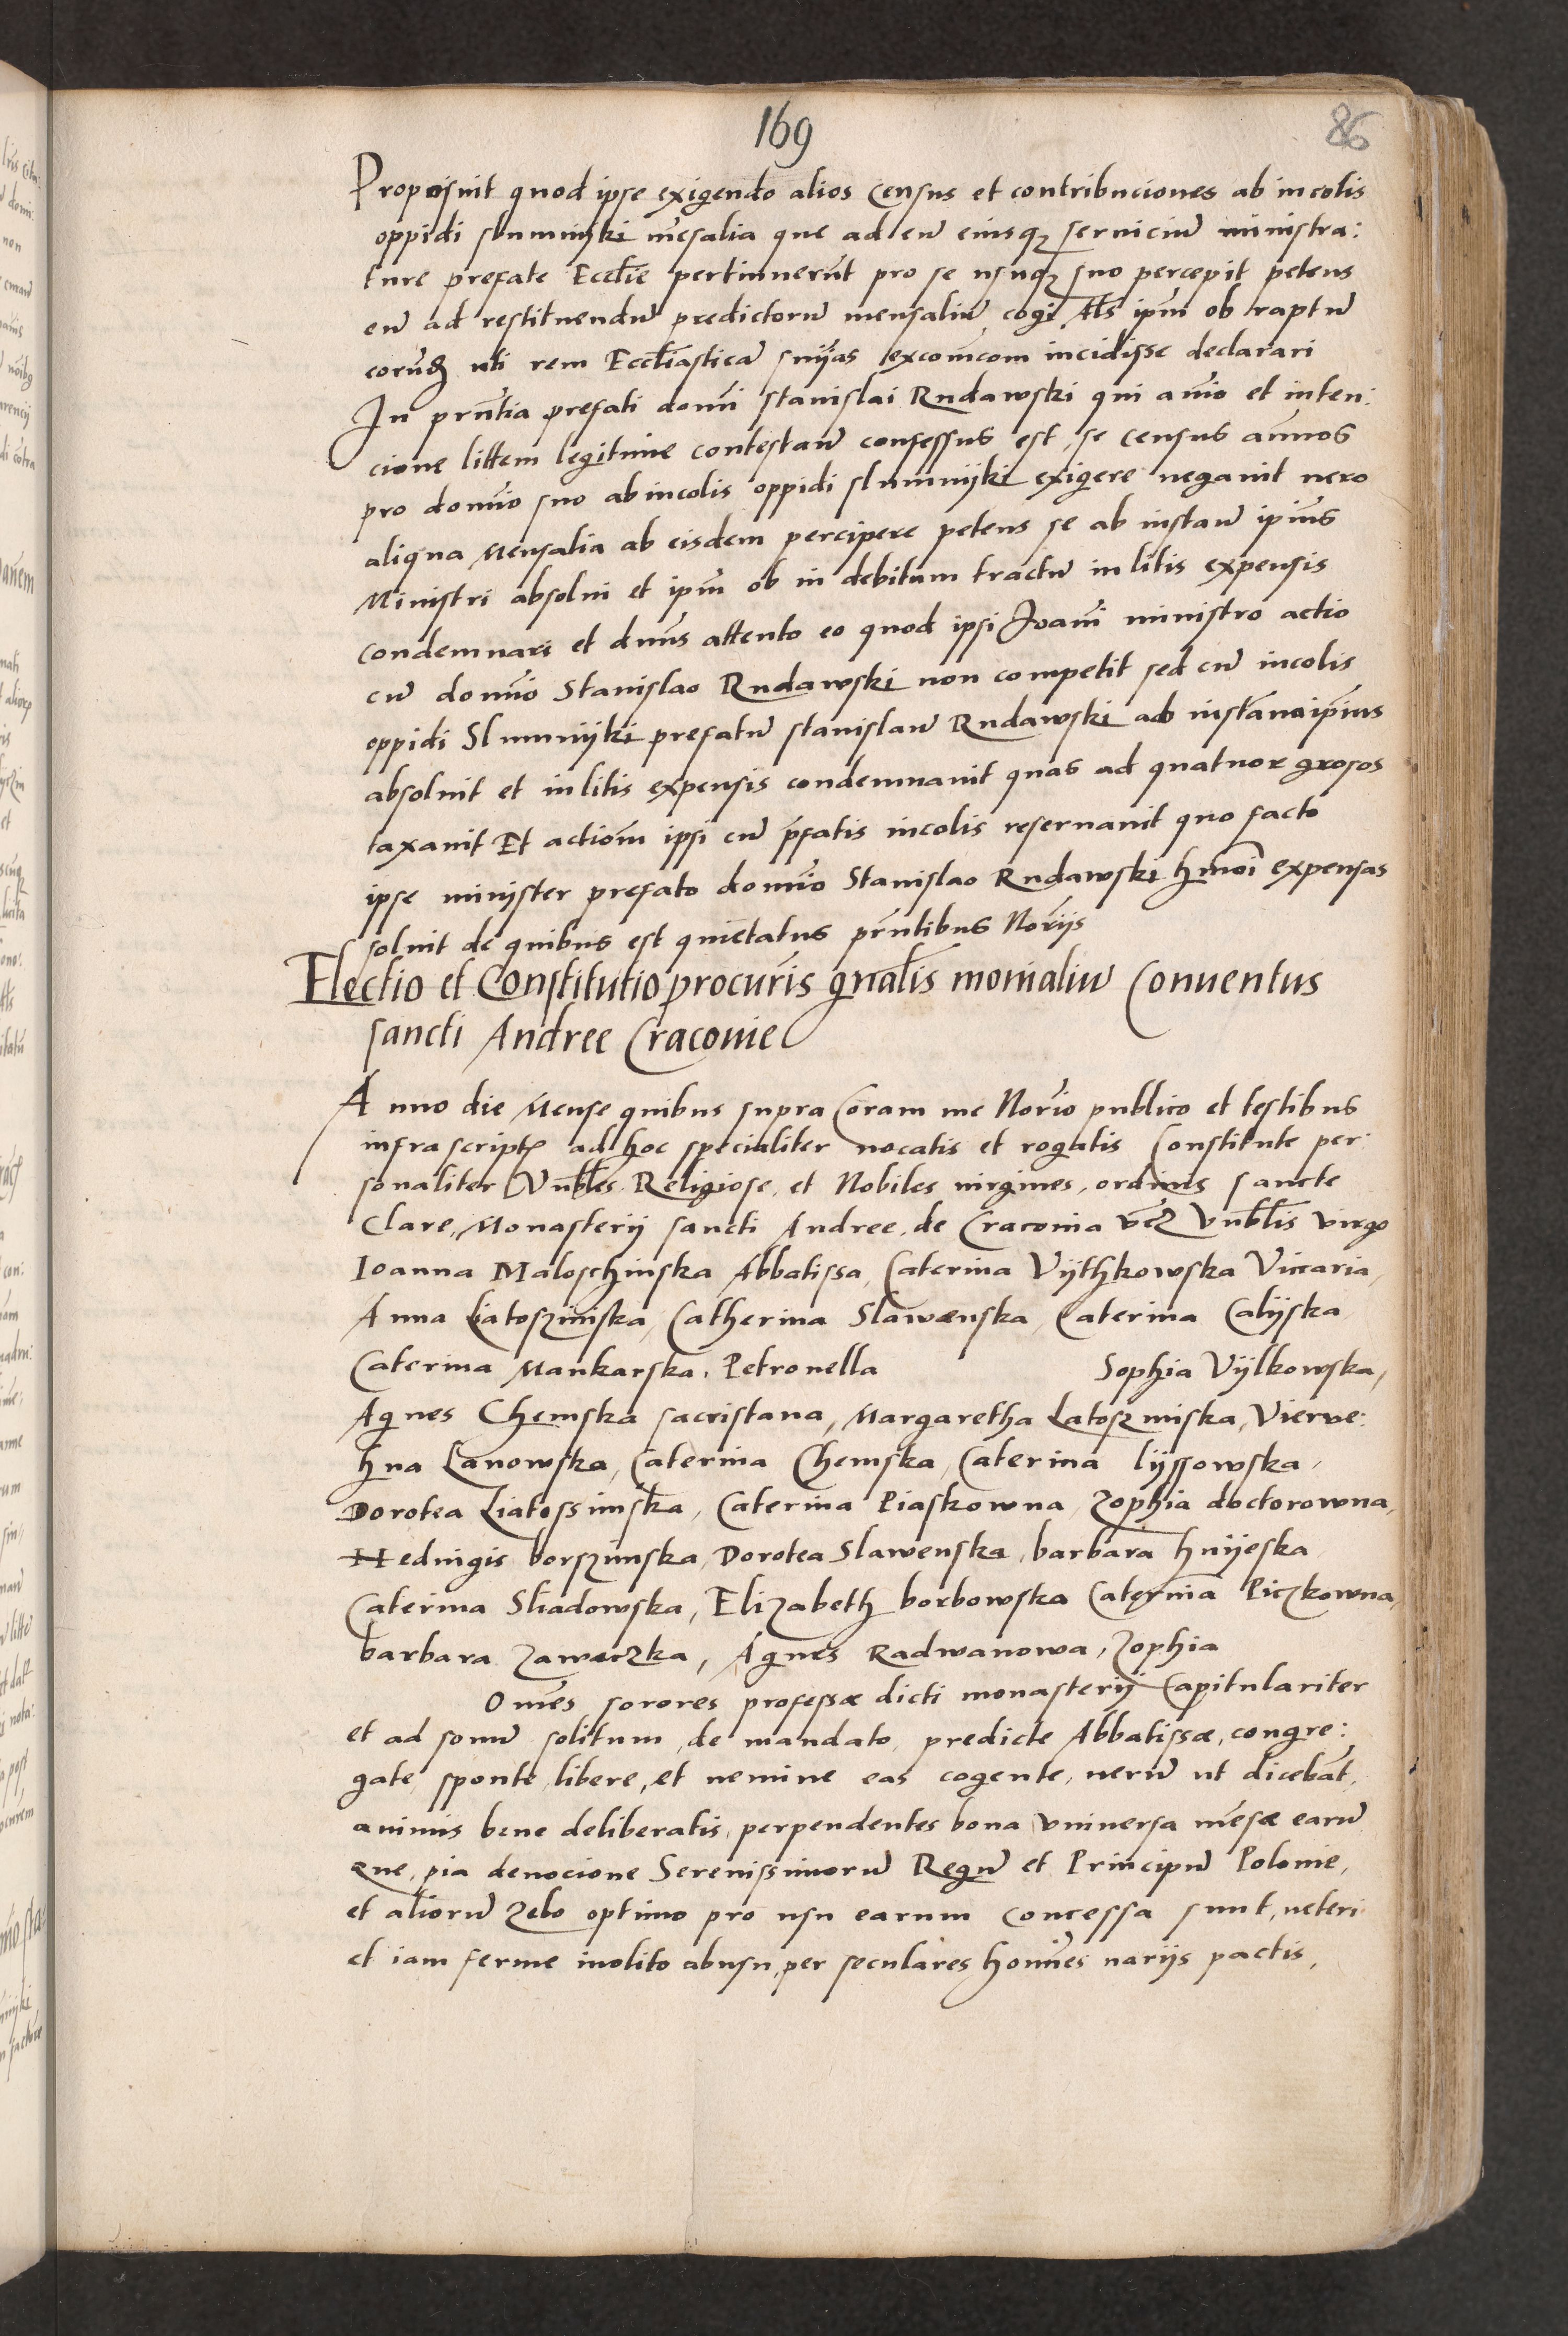 169
86
Proposuit quod ipse exigendo alios census et contribuciones ab incolis
oppidi slumnijki mēsalia que ad eū eiusqꝫ seruiciū ministra:
ture prefate Eccl̄ie pertinuerūt pro se usuqꝫ suo percepit petens
eū ad restituendū predictorū mensaliū cogi Al̄s ip̄m ob raptū
eorūdē uti rem Eccl̄iasticā sn̄ijas excom̄com incidisse declarari
In prn̄tia prefati domī stanislai Rudawski qui aīo et inten:
cione littem legitime contestan̄ confessus est se census annos
pro domīo suo ab incolis oppidi slumnijki exigere negauit uero
aliqua Mensalia ab eisdem percipere petens se ab instan̄ ip̄ius
Ministri absolui et ip̄m ob in debitum tractū in litis expensis
condemnari et dn̄us attento eo quod ipsi Joanī ministro actio
cū domīo Stanislao Rudawski non competit sed cū incolis
oppidi Slumnijki prefatū stanislaū Rudawski ab instancia ip̄ius
absoluit et in litis expensis condemnauit quas ad quatuor grosos
taxauit Et actiōm ipsi cū p̄fatis incolis reseruauit quo facto
ipse minister prefato domīo Stanislao Rudawski hmōi expensas
soluit de quibus est quietatus prn̄tibus Norījs
Electio et Constitutio procurīs gn̄alis monialiū Conuentus
sancti Andree Cracouie
Anno die Mense quibus supra Coram me Norīo publico et testibus
infra scriptꝭ ad hoc specialiter uocatis et rogatis Constitute per:
sonaliter Vn̄bl̄es Religiose, et Nobiles uirgines, ordinis sancte
Clare, Monasterij sancti Andree, de Cracouia vꝫ Vn̄bl̄is Virgo
Ioanna Maloschinska Abbatissa, Caterina Vijthkowska Vicaria,
Anna Liatoszinska, Catherina Slawænska, Caterina Calijska
Caterina Mankarska, Petronella Sophia Vijlkowska,
Agnes Chemska sacristana, Margaretha Latoszinska, Vierue:
hna Lanowska, Caterina Chemska, Caterina lijssowska,
Dorotea Liatossinska, Caterina Piaskowna, Zophia doctorowna,
Heduigis borszinska, Dorotea Slawenska, barbara hnijeska
Caterina Sliadowska, Elizabeth borbowska Caterina Piczkowna,
barbara Zawaczka, Agnes Radwanowa, Zophia
Omēs sorores professæ dicti monasterij Capitulariter
et ad sonū solitum, de mandato, predicte Abbatissæ, congre:
gate, sponte, libere, et nemine eas cogente, uerū ut dicebāt,
animis bene deliberatis, perpendentes bona vniuersa mēsæ earū
que, pia deuocione Serenissimorū Regū et Principū Polonie,
et aliorū zelo optimo pro usu earum concessa sunt, ueteri
et iam ferme inolito abusu, per seculares homīes uarijs pactis,